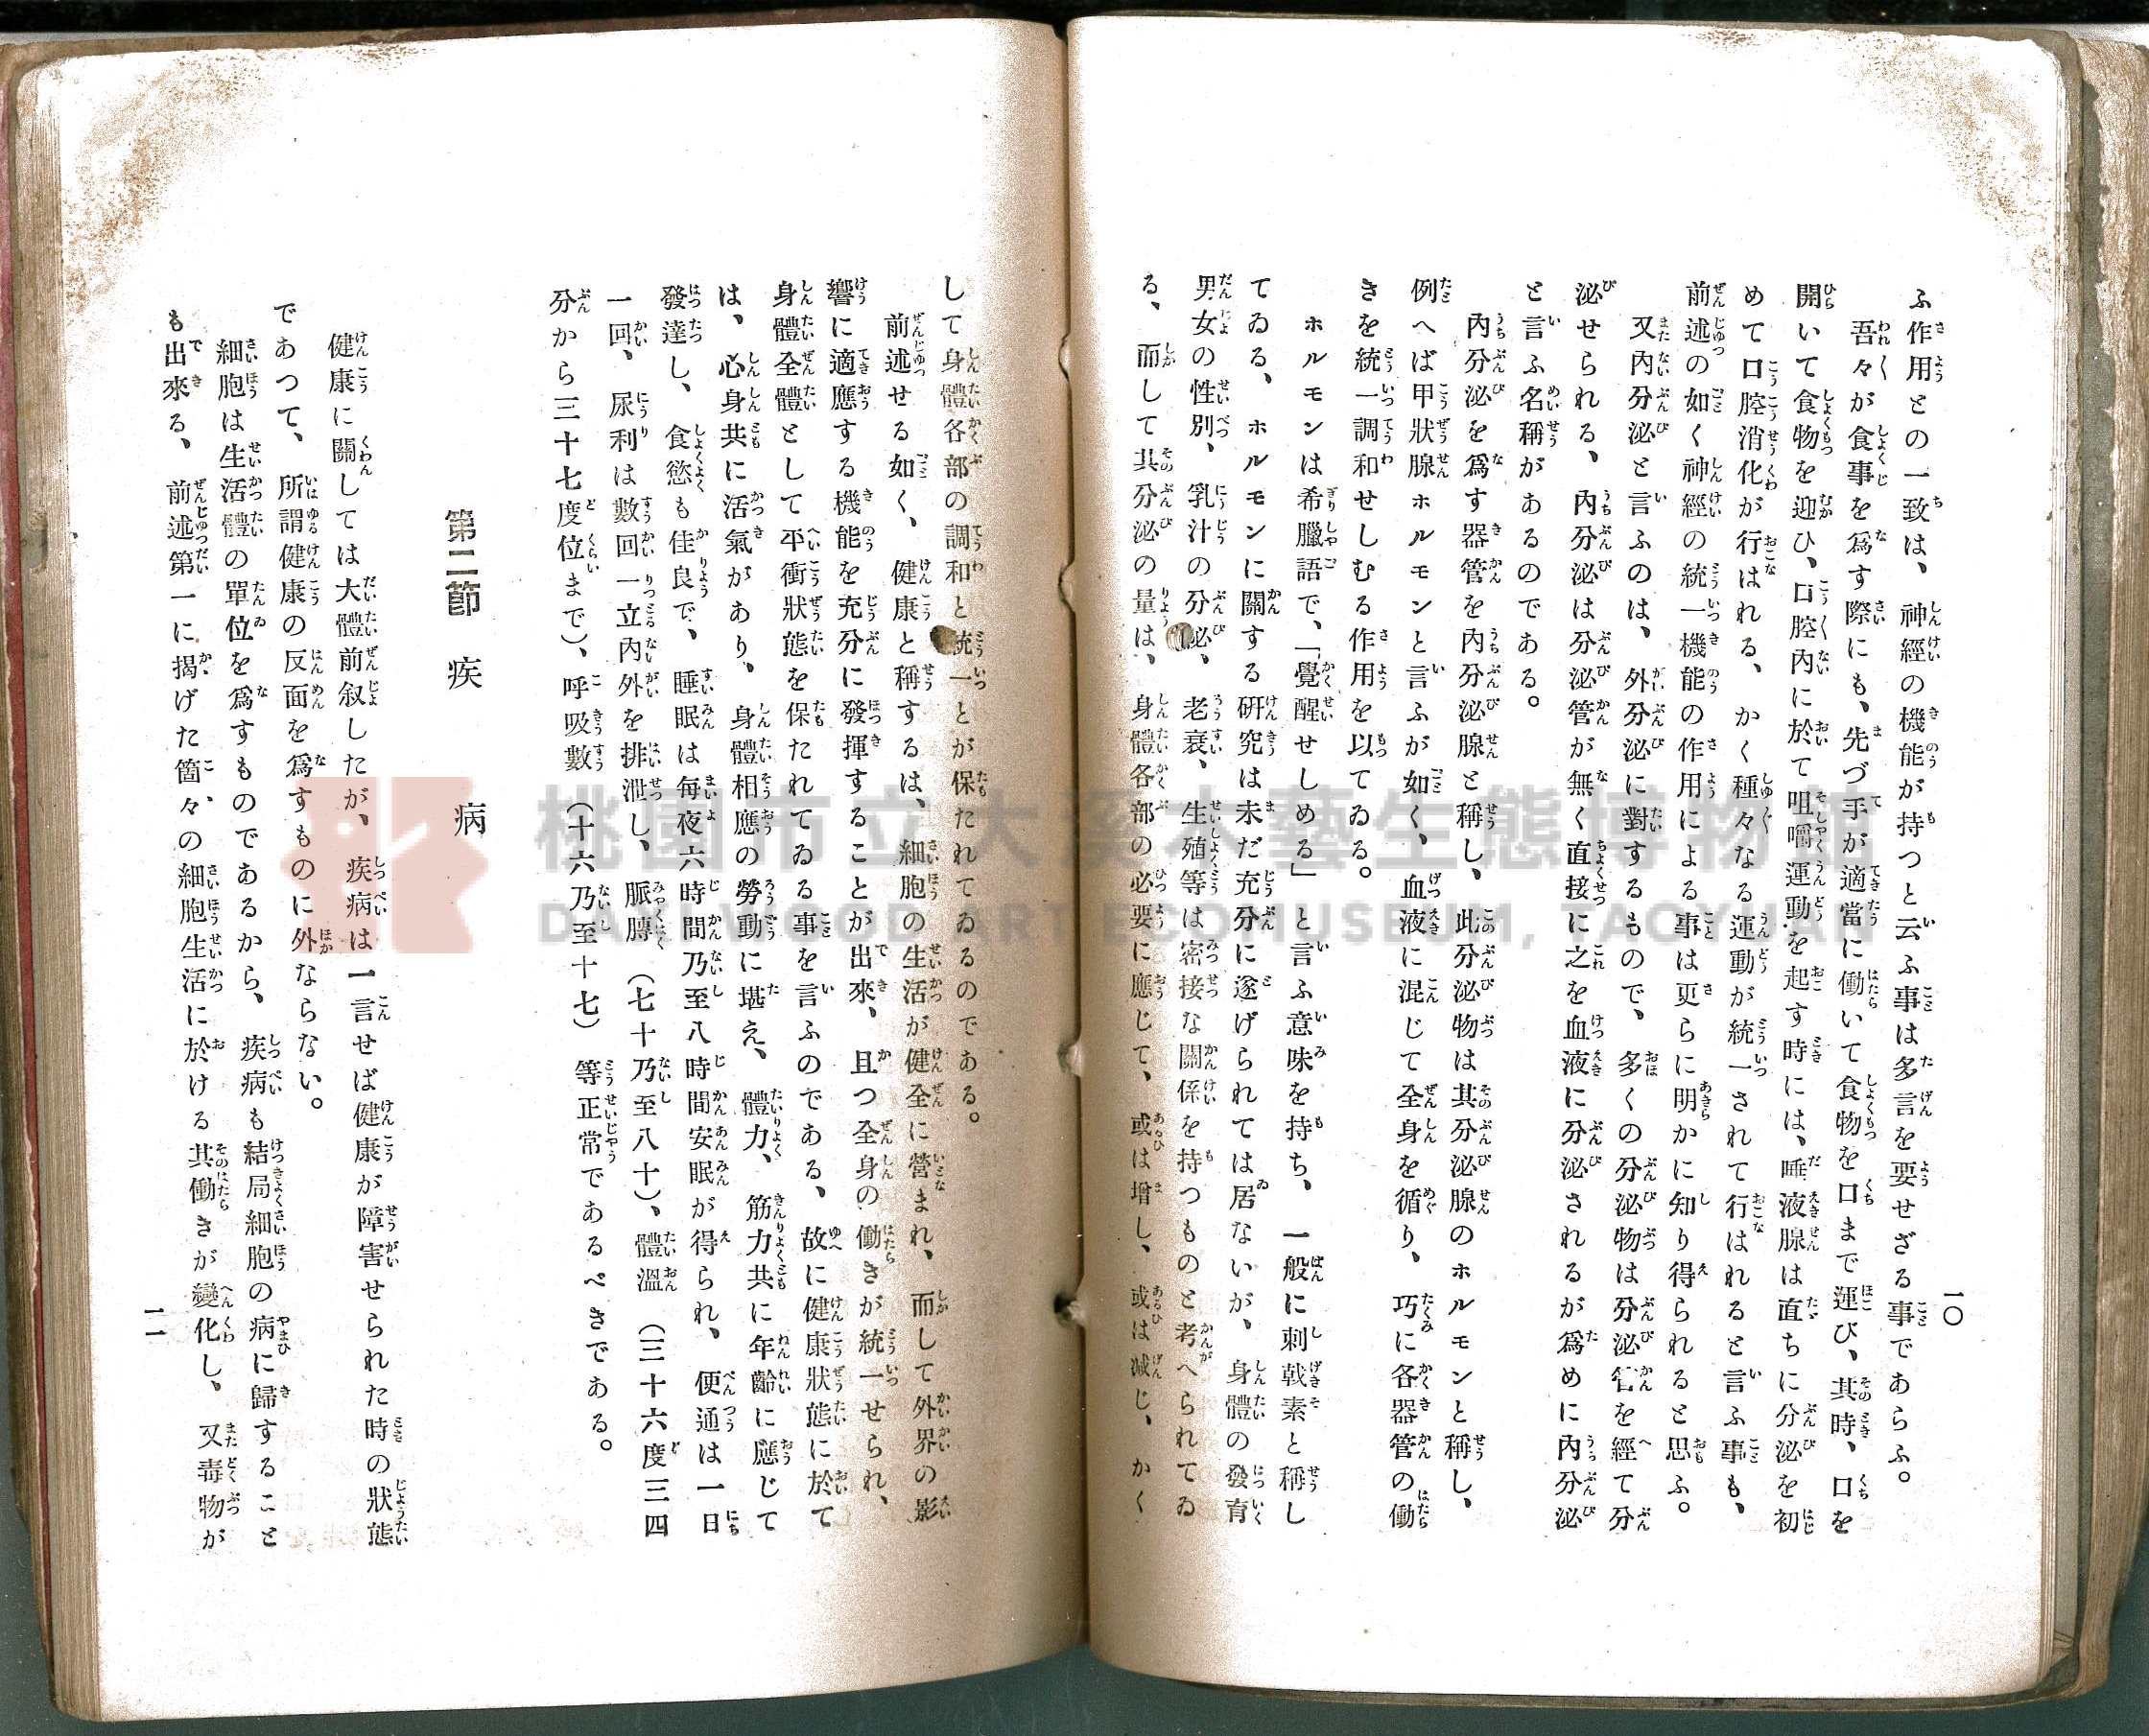 ふ作用との一致は、神經の機能が持つと云ふ事は多言を要せざる事であらふ。
吾々が食事を爲す際にも、先づ手が適當に働いて食物を口まで運び、其時、口を
開いて食物を迎ひ、口腔內に於て咀嚼運動を起す時には、唾液腺は直ちに分泌を初
めて口腔消化が行はれる、かく種々なる運動が統一されて行はれると言ふ事も、
前述の如く神經の統一機能の作用による事は更らに明かに知り得られると思ふ。
又內分泌と言ふのは、外分泌に對するもので、多くの分泌物は分泌管を經て分
泌せられる、內分泌は分泌管が無く直接に之を血液に分泌されるが爲めに內分泌
と言ふ名稱があるのである。
內分泌を爲す器管を內分泌腺と稱し、此分泌物は其分泌腺のホルモンと稱し、
例へば甲狀腺ホルモンと言ふが如く、血液に混じて全身を循り、巧に各器管の働
きを統一調和せしむる作用を以てゐる。
ホルモンは希臘語で、「覺醒せしめる」と言ふ意味を持ち、一般に刺戟素と稱し
てゐる、ホルモンに關する硏究は未だ充分に遂げられては居ないが、身體の發育
男女の性別、乳汁の分泌、老衰、生殖等は密接な關係を持つものと考へられてゐ
る、而して其分泌の量は、身體各部の必要に應じて、或は增し、或は減じ、かく
一〇
して身體各部の調和と統一とが保たれてゐるのである。
前述せる如く、健康と稱するは、細胞の生活が健全に營まれ、而して外界の影
響に適應する機能を充分に發揮することが出來、且つ全身の働きが統一せられ、
身體全體として平衝狀態を保たれてゐる事を言ふのである、故に健康狀態に於て
は、心身共に活氣があり、身體相應の勞動に堪え、體力、筋力共に年齡に應じて
發達し、食慾も佳良で、睡眠は每夜六時間乃至八時間安眠が得られ、便通は一日
一回、尿利は數回一立內外を排泄し、脈膊（七十乃至八十）、體溫（三十六度三四
分から三十七度位まで）、呼吸數（十六乃至十七）等正常であるべきである。
第二節 疾病
健康に關しては大體前叙したが、疾病は一言せば健康が障害せられた時の狀態
であつて、所謂健康の反面を爲すものに外ならない。
細胞は生活體の單位を爲すものであるから、疾病も結局細胞の病に歸すること
も出來る、前述第一に揭げた箇々の細胞生活に於ける其働きが變化し、又毒物が
一一
桃園市立大溪木藝生態博物館
DAXI WOOD ART ECOMUSEUM, TAOYUAN